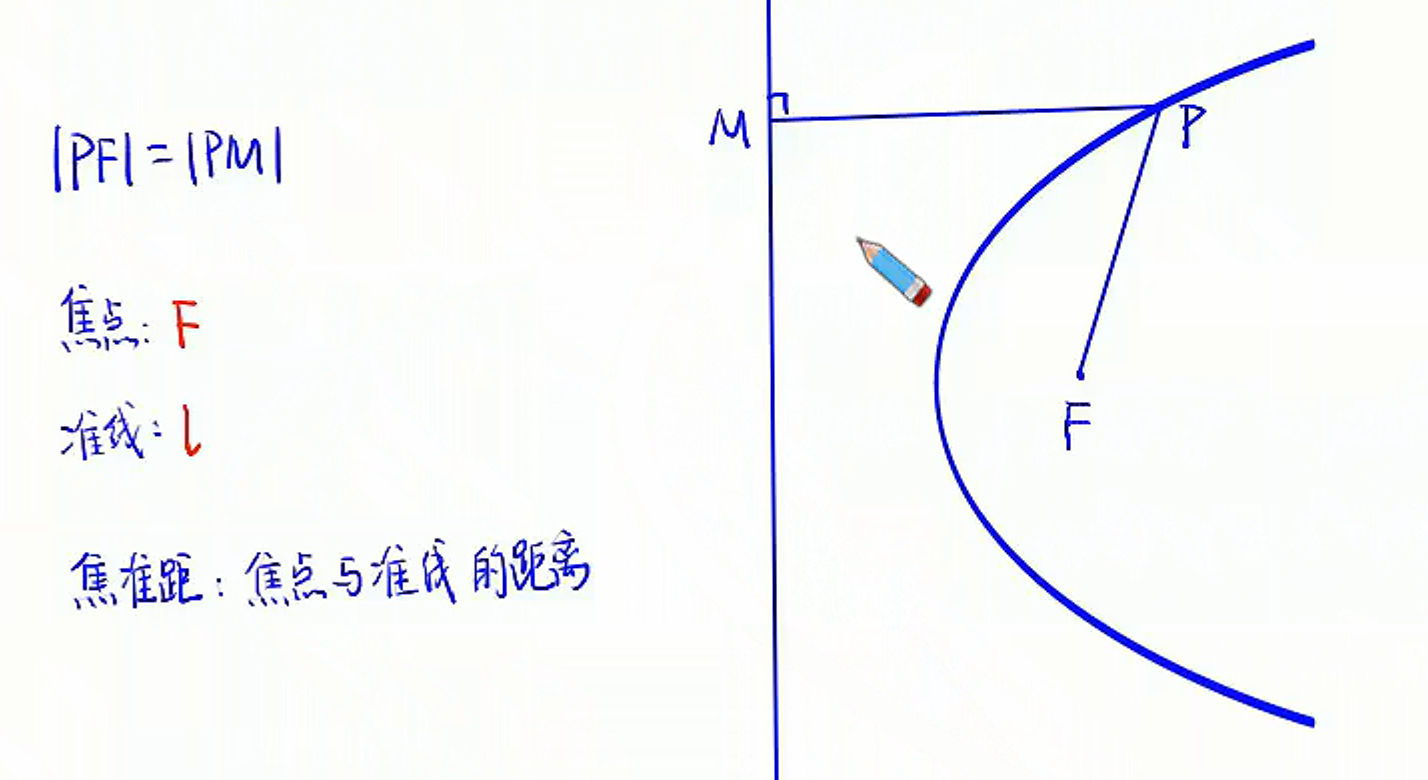 |PF|=|PM|
焦点: F
准线: l
焦准距: 焦点与准线的距离
M
P
F